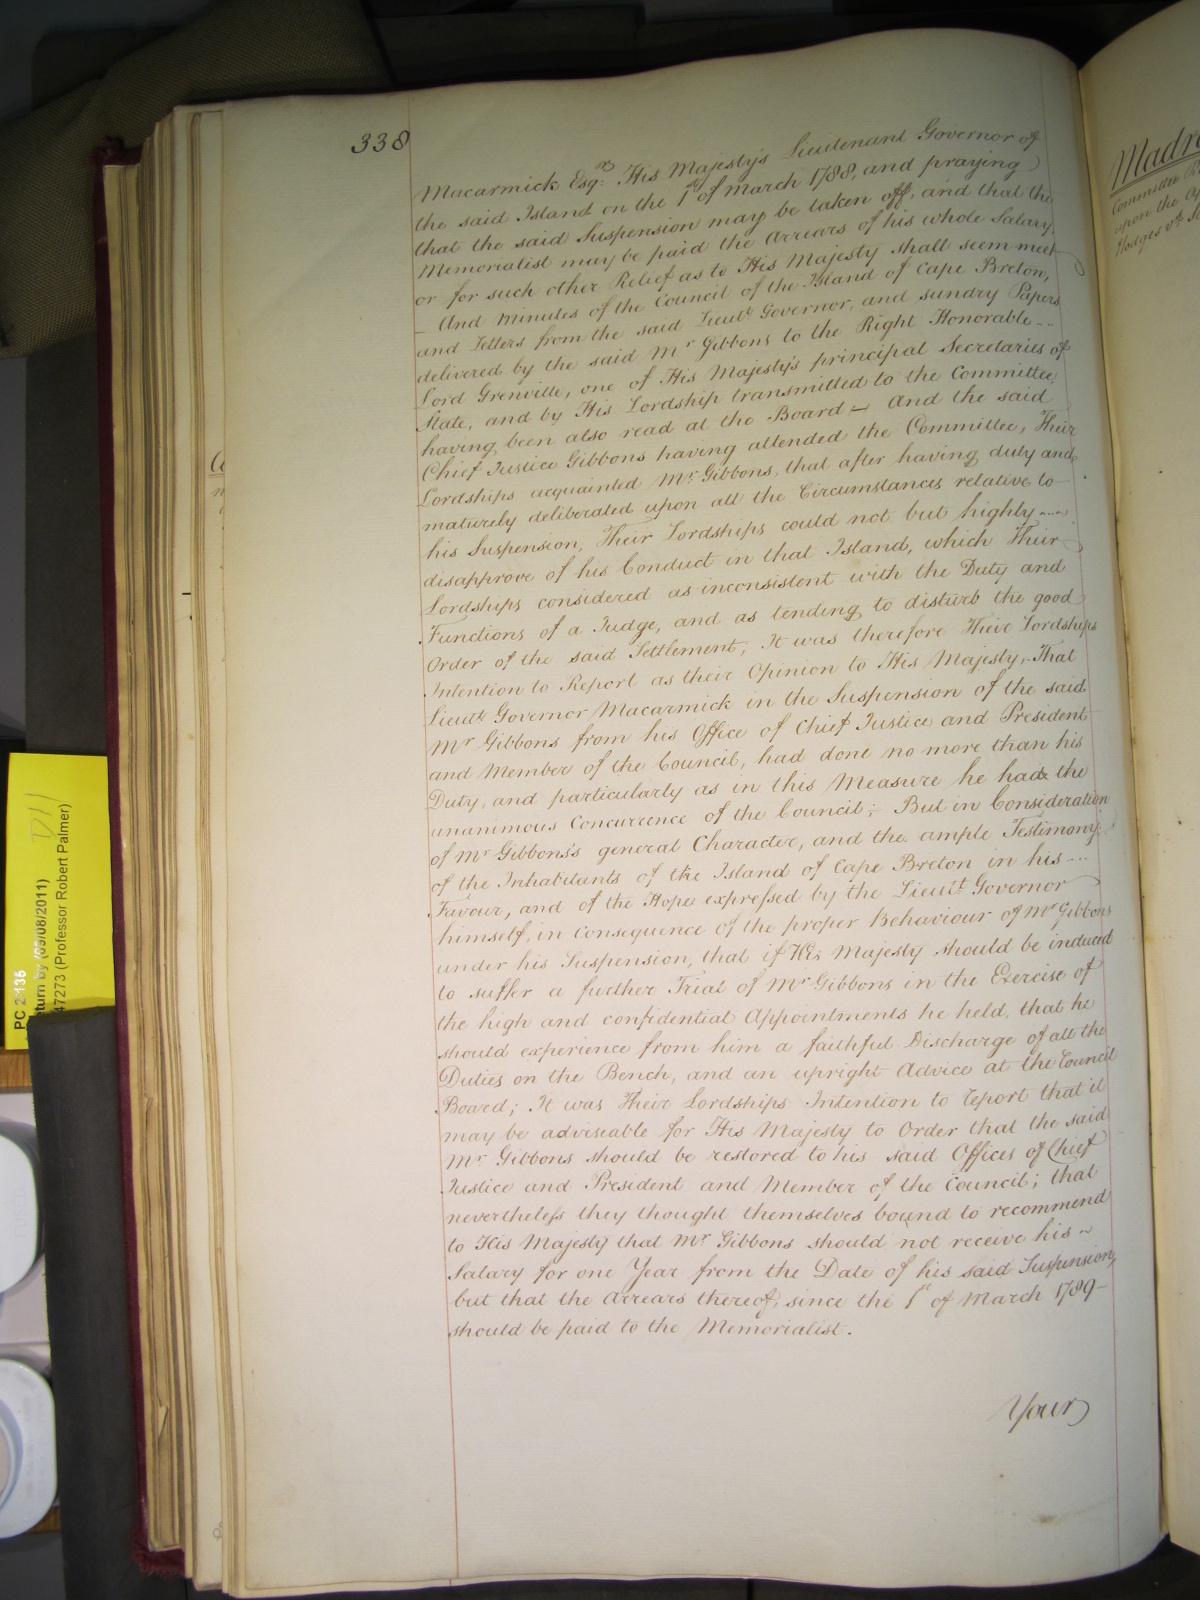 338
Macarmick Esqr. His Majesty's Lieutenant Governor of
the said Island on the 1st of March 1788, and praying
that the said Suspension may be taken off, and that the
Memorialist may be paid the Arrears of his whole Salary,
or for such other Relief as to His Majesty shall seem meet
— And Minutes of the Council of the Island of Cape Breton,
and Letters from the said Lieut. Governor, and sundry Papers
delivered by the said Mr Gibbons to the Right Honorable
Lord Grenville, one of His Majesty's principal Secretaries of
State, and by His Lordship transmitted to the Committee,
having been also read at the Board — And the said
Chief Justice Gibbons having attended the Committee, Their
Lordships acquainted Mr. Gibbons, that after having duly and
maturely deliberated upon all the Circumstances relative to
his Suspension, Their Lordships could not but highly
disapprove of his Conduct in that Island, which Their
Lordships considered as inconsistent with the Duty and
Functions of a Judge, and as tending to disturb the good
Order of the said Settlement; It was therefore Their Lordships
Intention to Report as their Opinion to His Majesty, That
Lieut. Governor Macarmick in the Suspension of the said
Mr Gibbons from his Office of Chief Justice and President
and Member of the Council, had done no more than his
Duty, and particularly as in this Measure he had the
unanimous Concurrence of the Council; But in Consideration
of Mr Gibbons's general Character, and the ample Testimony
of the Inhabitants of the Island of Cape Breton in his
Favour, and of the Hope expressed by the Lieut. Governor
himself, in consequence of the proper Behaviour of Mr Gibbons
under his Suspension, that if His Majesty should be induced
to suffer a further Trial of Mr Gibbons in the Exercise of
the high and confidential Appointments he held, that he
should experience from him a faithful Discharge of all the
Duties on the Bench, and an upright Advice at the Council
Board; It was Their Lordships Intention to report that it
may be adviseable for His Majesty to Order that the said
Mr. Gibbons should be restored to his said Offices of Chief
Justice and President and Member of the Council; that
nevertheless they thought themselves bound to recommend
to His Majesty that Mr. Gibbons should not receive his
Salary for one Year from the Date of his said Suspension,
but that the Arrears thereof, since the 1st of March 1789
should be paid to the Memorialist.
Your
Madr
Committee R
upon the Ap
Hodges vs. S
PC 2 136
turn by (09/08/2011)
47273 (Professor Robert Palmer)
D11